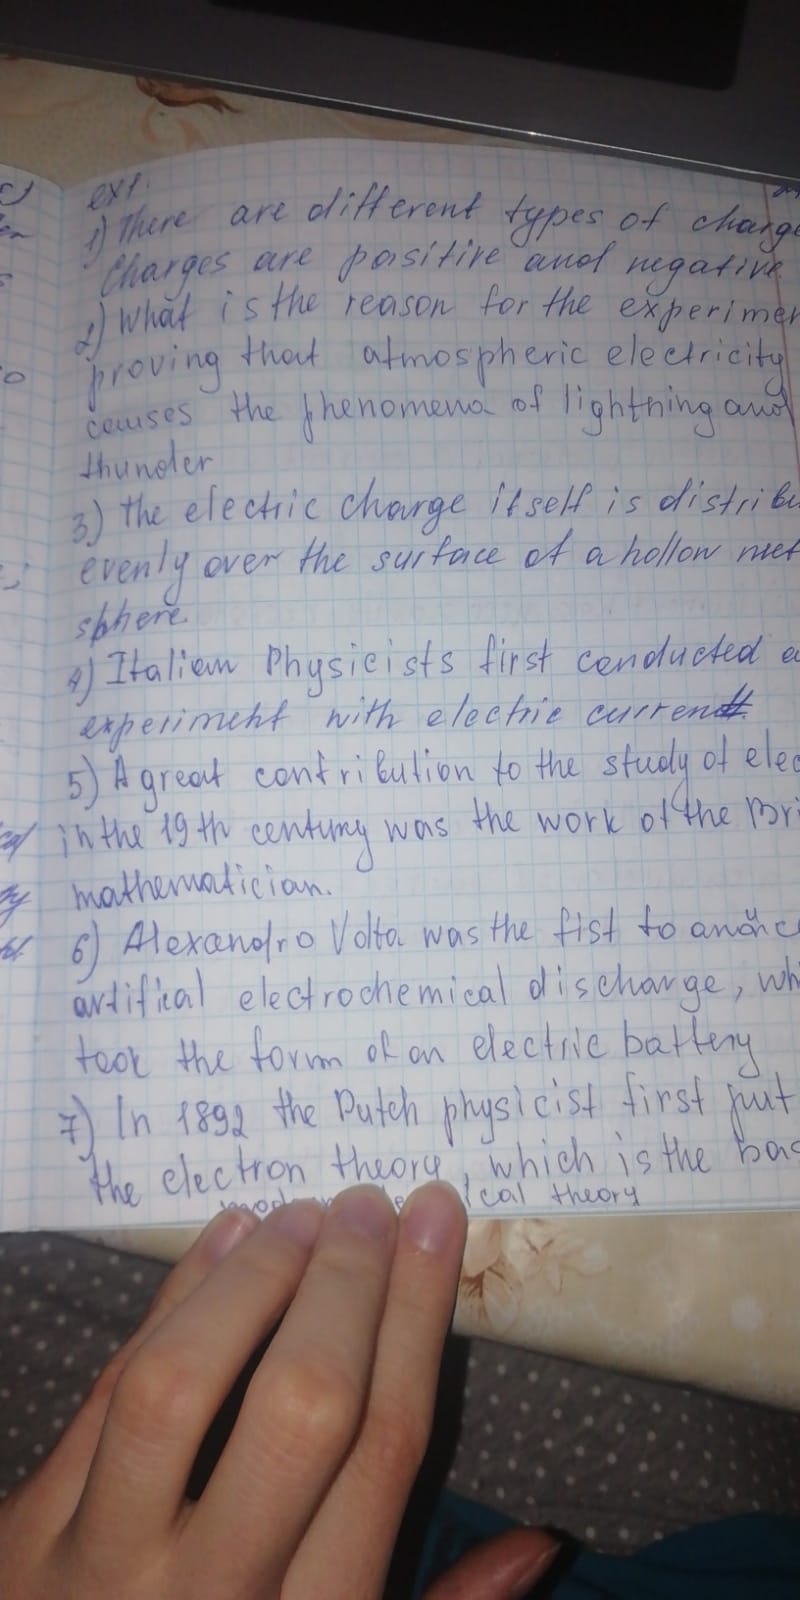 ex1.
1) There are different types of charge
Charges are positive and negative.
2) What is the reason for the experimen
proving that atmospheric electricity
causes the phenomena of lightning and
thunder
3) The electric charge itself is distribu
evenly over the surface of a hollow met
sphere.
4) Italian Physicists first conducted a
experiment with electric current.
5) A great contribution to the study of elec
in the 19th century was the work of the Bri
mathematician.
6) Alexandro Volta was the fist to
artifical electrochemical discharge, whi
took the form of an electric battery
7) In 1892 the Dutch physicist first put
the electron theory, which is the bas
cal theory